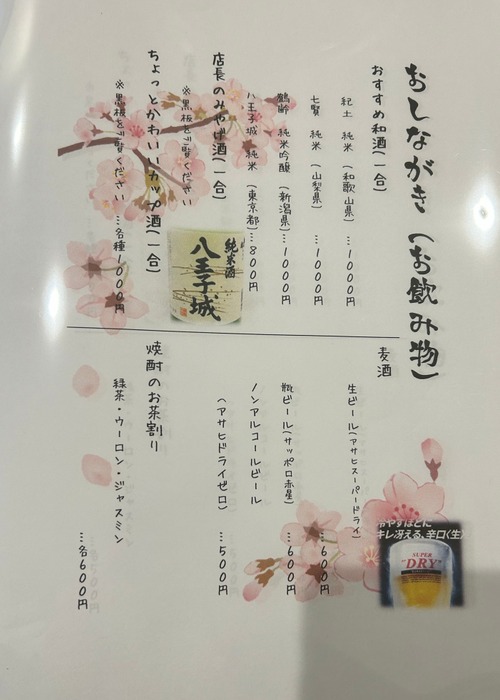 おしながき（お飲み物）
おすすめ和酒（一合）
紀土　純米（和歌山県）…1000円
七賢　純米（山梨県）…1000円
鶴齢　純米吟醸（新潟県）…1000円
八王子城　純米（東京都）…800円
店長のみやげ酒（一合）
※黒板をご覧ください
ちょっとかわいいカップ酒（一合）
※黒板をご覧ください…各種1000円
純米酒
八王子城
麦酒
生ビール（アサヒスーパードライ）…600円
瓶ビール（サッポロ赤星）…600円
ノンアルコールビール
（アサヒドライゼロ）…500円
焼酎のお茶割り
緑茶・ウーロン・ジャスミン
…各600円
冷やすほどに
キレ冴える、辛口〈生〉
SUPER
"DRY"